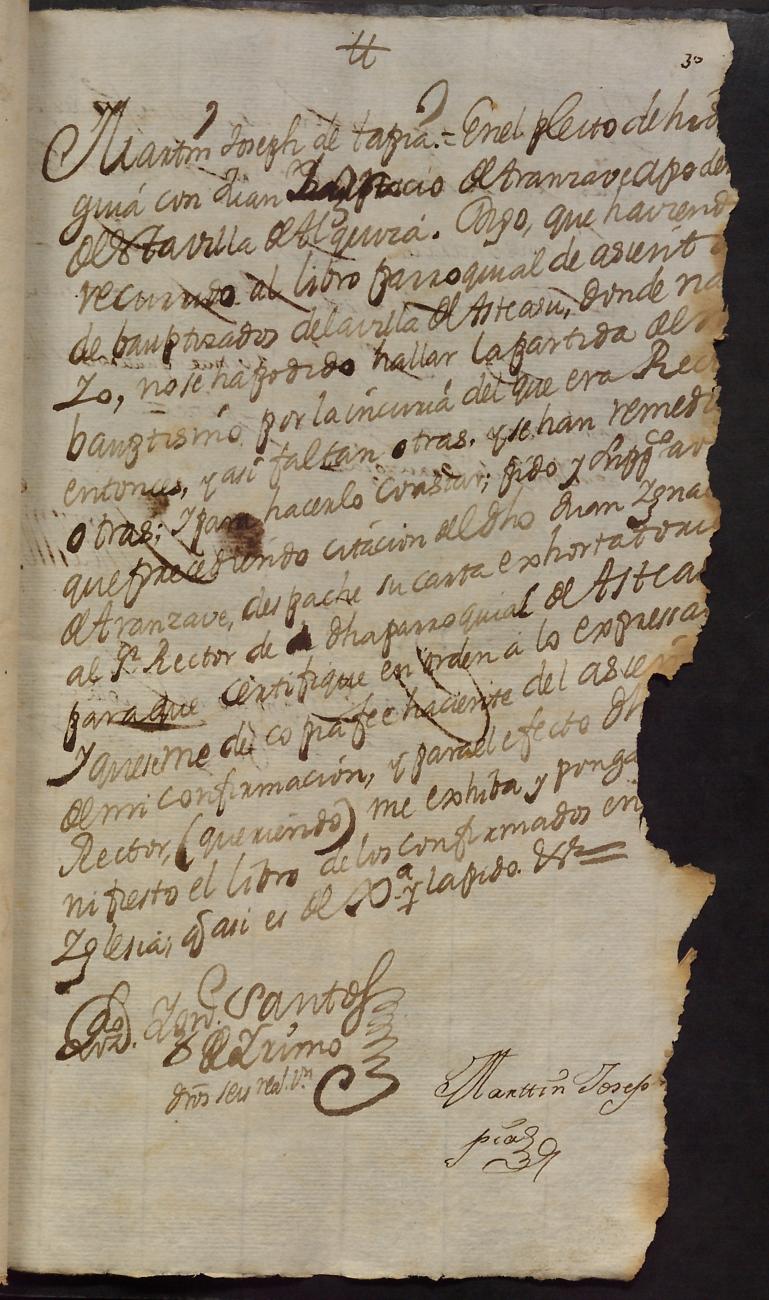 30
Martin Joseph de tapia.= Enel pleito de hid
guiá con Juan Ignacio de Aranzave apoder
de estta villa de Alquizá. Digo, que haviend
recurrido al libro parroquial de asient
de bauptizados dela villa de Asteasu, donde na
zo, no se ha podido hallar la partida de
bauptismo por la incuriá del que era Rect
entonces, y asi faltan otras, y se han remedi
otras; y para hacerlo Constar; pido y supp.co a v
que precediendo citácion del dho Juan Igna
de Aranzave, despache su carta exhortatori
al S.r Rector de dha parroquial de Astea
para que Certifique en orden a lo expressa
y quese me dé copia fee haciente del asien
de mi confirmación, y para el efecto dh
Rector, (queriendo) me exhiba y ponga
nifiesto el libro de los confirmados en
Yglesia; q asi es de y la pido. &a
Santos
dros seis real. vn
Marttin Joseph
piá